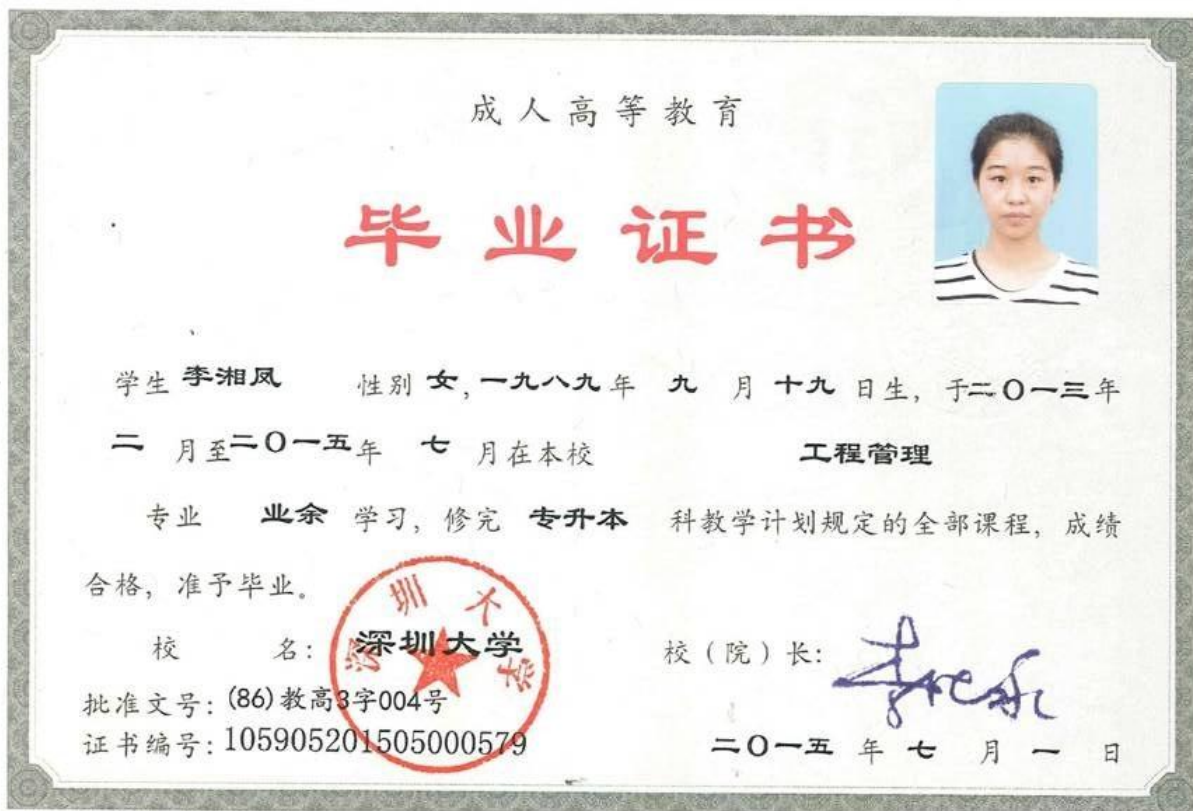 成人高等教育
毕业证书
学生 李湘凤 性别 女, 一九八九年 九 月 十九 日生, 于二〇一三年
二 月至二〇一五年 七 月在本校 工程管理
专业 业余 学习, 修完 专升本 科教学计划规定的全部课程, 成绩
合格, 准予毕业。
深圳大学
校 名: 深圳大学 校(院)长:
批准文号: (86)教高3字004号
证书编号: 105905201505000579 二〇一五 年 七 月 一 日